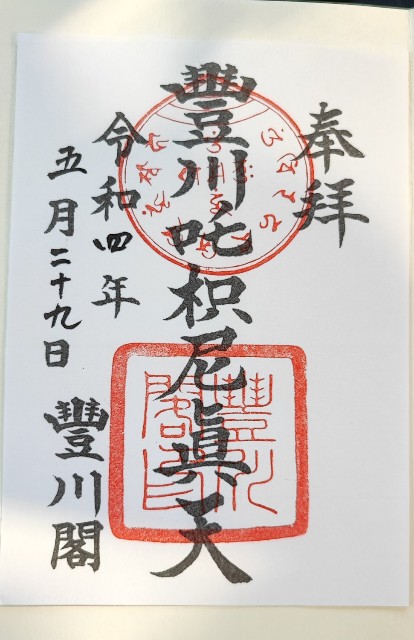 奉拝
豐川吒枳尼眞天
令和四年
五月二十九日
豐川閣
豐川閣印